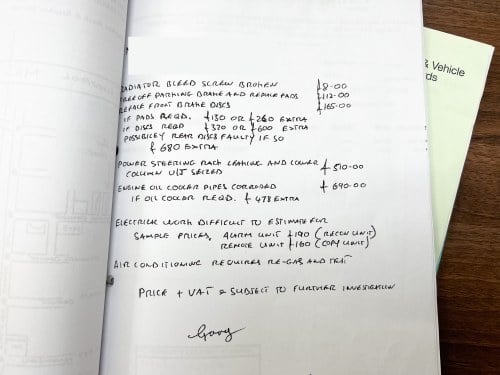 RADIATOR BLEED SCREW BROKEN £8-00
FREE OFF PARKING BRAKE AND REPLACE PADS £112-00
REPLACE FRONT BRAKE DISCS £165-00
IF PADS REQD. £130 OR £260 EXTRA
IF DISCS REQD £320 OR £600 EXTRA
POSSIBILEY REAR DISCS FAULTY IF SO
£680 EXTRA
POWER STEERING RACK LEAKING AND LOWER £510-00
COLUMN U/J SEIZED
ENGINE OIL COOLER PIPES CORRODED £690-00
IF OIL COOLER REQD. £478 EXTRA
ELECTRICAL WORK DIFFICULT TO ESTIMATE FOR
SAMPLE PRICES, ALARM UNIT £190 (RECON UNIT)
REMOTE UNIT £160 (COPY UNIT)
AIR CONDITIONING REQUIRES RE-GAS AND TEST
PRICE + VAT & SUBJECT TO FURTHER INVESTIGATION
& Vehicle
ds